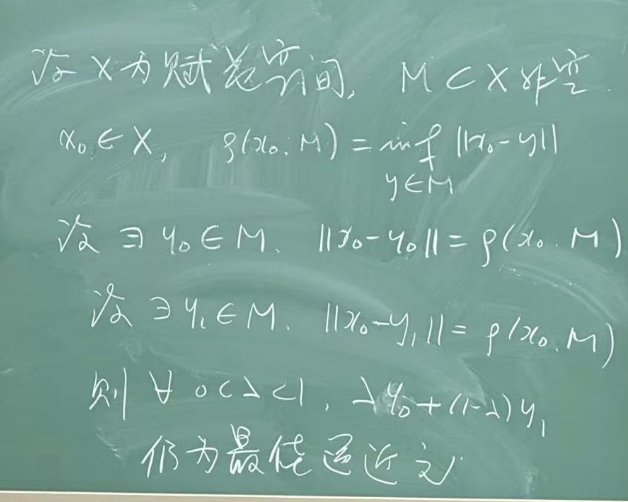 设 X 为赋范空间, M ⊂ X 非空.
x₀ ∈ X, ρ(x₀, M) = inf ‖x₀-y‖
y∈M
设 ∃ y₀ ∈ M. ‖x₀-y₀‖ = ρ(x₀, M)
设 ∃ y₁ ∈ M. ‖x₀-y₁‖ = ρ(x₀, M)
则 ∀ 0<λ<1, λy₀+(1-λ)y₁
仍为最佳逼近元